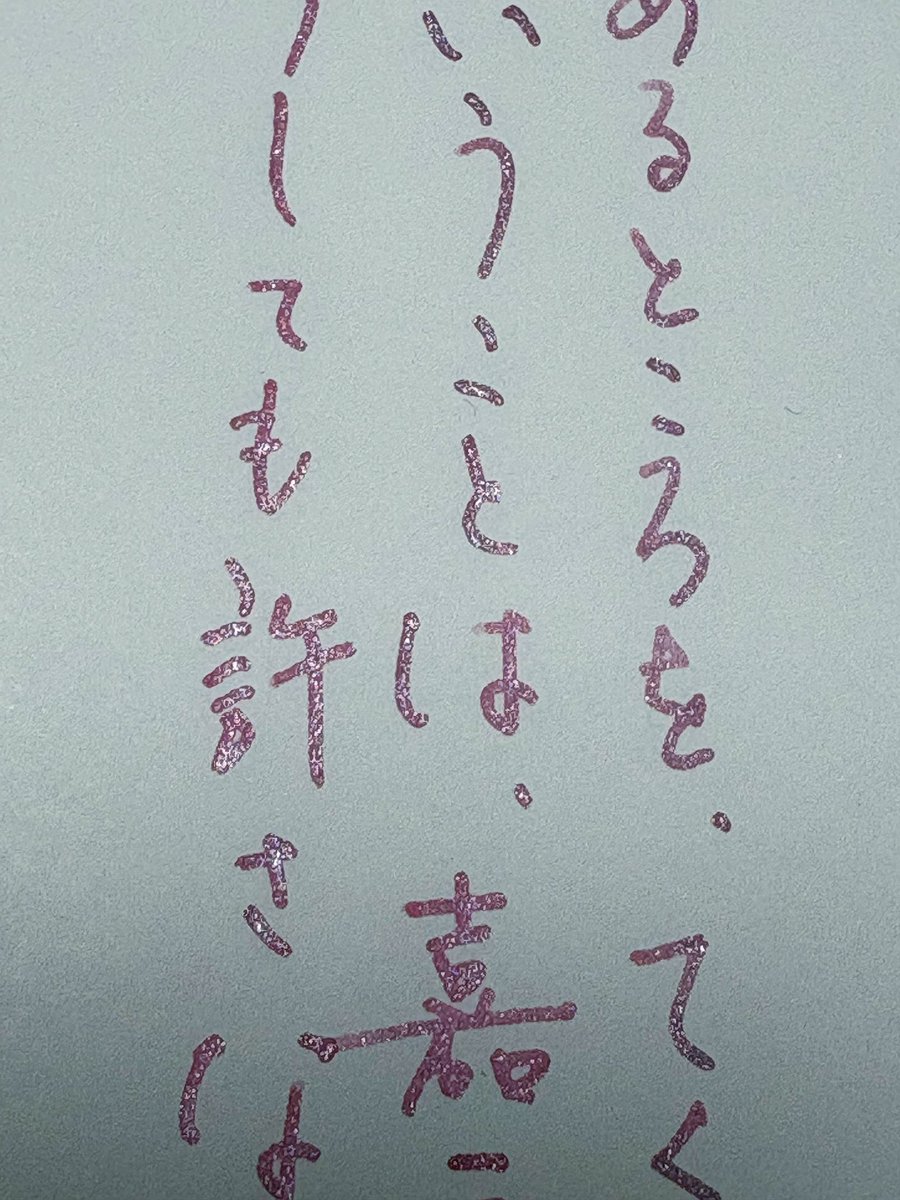 るところを、てく
いうことは、嘉
しても許さ